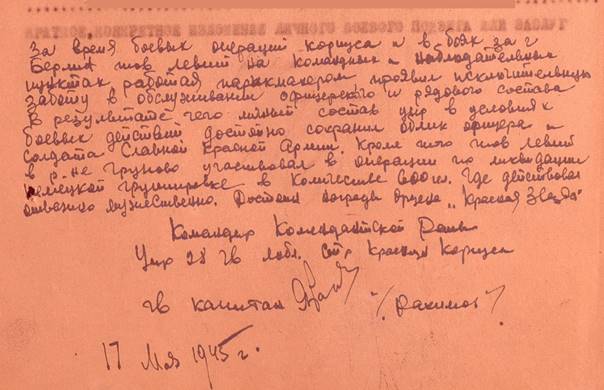 За время боевых операций корпуса и в боях за г
Берлин тов левит на командных и наблюдательных
пунктах работая парикмахером проявил исключительную
заботу в обслуживании офицерского и рядового состава
В результате чего личный состав упр в условиях
боевых действий достойно сохранил облик офицера и
солдата Славной Красной Армии. Кроме того тов левит
в р-не участвовал в операции по ликвидации
немецкой группировке в количестве 600 ч. Где действовал
отважно мужественно. Достоин награды ордена „Красная Звезда"
Командир Комендантской
Упр 28 гв стр Красноз Корпуса
гв капитан /Рахимов/
17 Мая 1945 г.